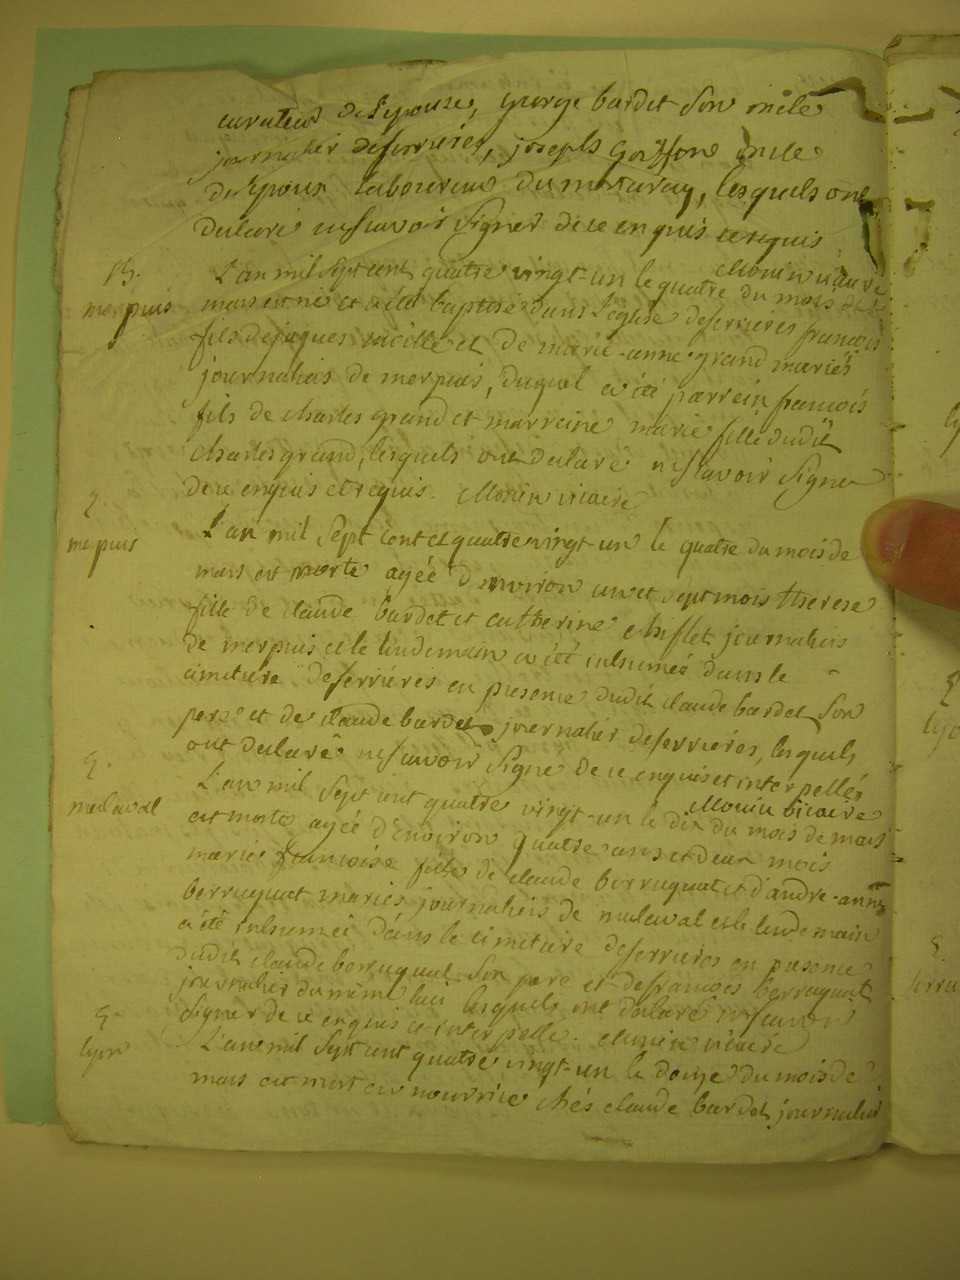 curateur de l'epouse, george bardet son oncle
journalier deserrieres, joseph goiffon oncle
de l'epoux laboureur du mataray, lesquels ont
declaré ne scavoir signer de ce enquis et requis
Monin vicaire
B.
merpuis
L'an mil sept cent quatre vingt-un le quatre du mois de
mars est né et a été baptisé dans l'eglise deserrieres françois
fils de jaques mielle et de marie-anne grand mariés
journaliers de merpuis, duquel a été parrein francois
fils de charles grand et marreine marie fille dudit
charles grand, lesquels ont declaré ne scavoir signer
de ce enquis et requis. Monin vicaire
S.
merpuis
L'an mil sept cent et quatre vingt-un le quatre du mois de
mars est morte agée d'environ un et sept mois therese
fille de claude bardet et catherine chiflet journaliers
de merpuis et le lindemain a été inhumée dans le
cimetiere deserrieres en presence dudit claude bardet son
pere et de claude bardet journalier deserrieres, lesquels
ont declaré ne scavoir signé de ce enquis et interpellés
Monin vicaire
S.
malaval
L'an mil sept cent quatre vingt-un le dix du mois de mars
est morte agée d'environ quatre ans et deux mois
marie francoise fille de claude berruquat et d'andre-anne
berruquat mariés journaliers de malaval et le lendemain
a été inhumée dans le cimetiere deserrieres en presence
dudit claude berruquat son pere et de francois berruquat
journalier du même lieu lesquels ont declaré ne scavoir
signer de ce enquis et interpellé. Monin vicaire
S.
lyon
L'an mil sept cent quatre vingt-un le douze du mois de
mars est mort en nourrice chés claude bardet journalier